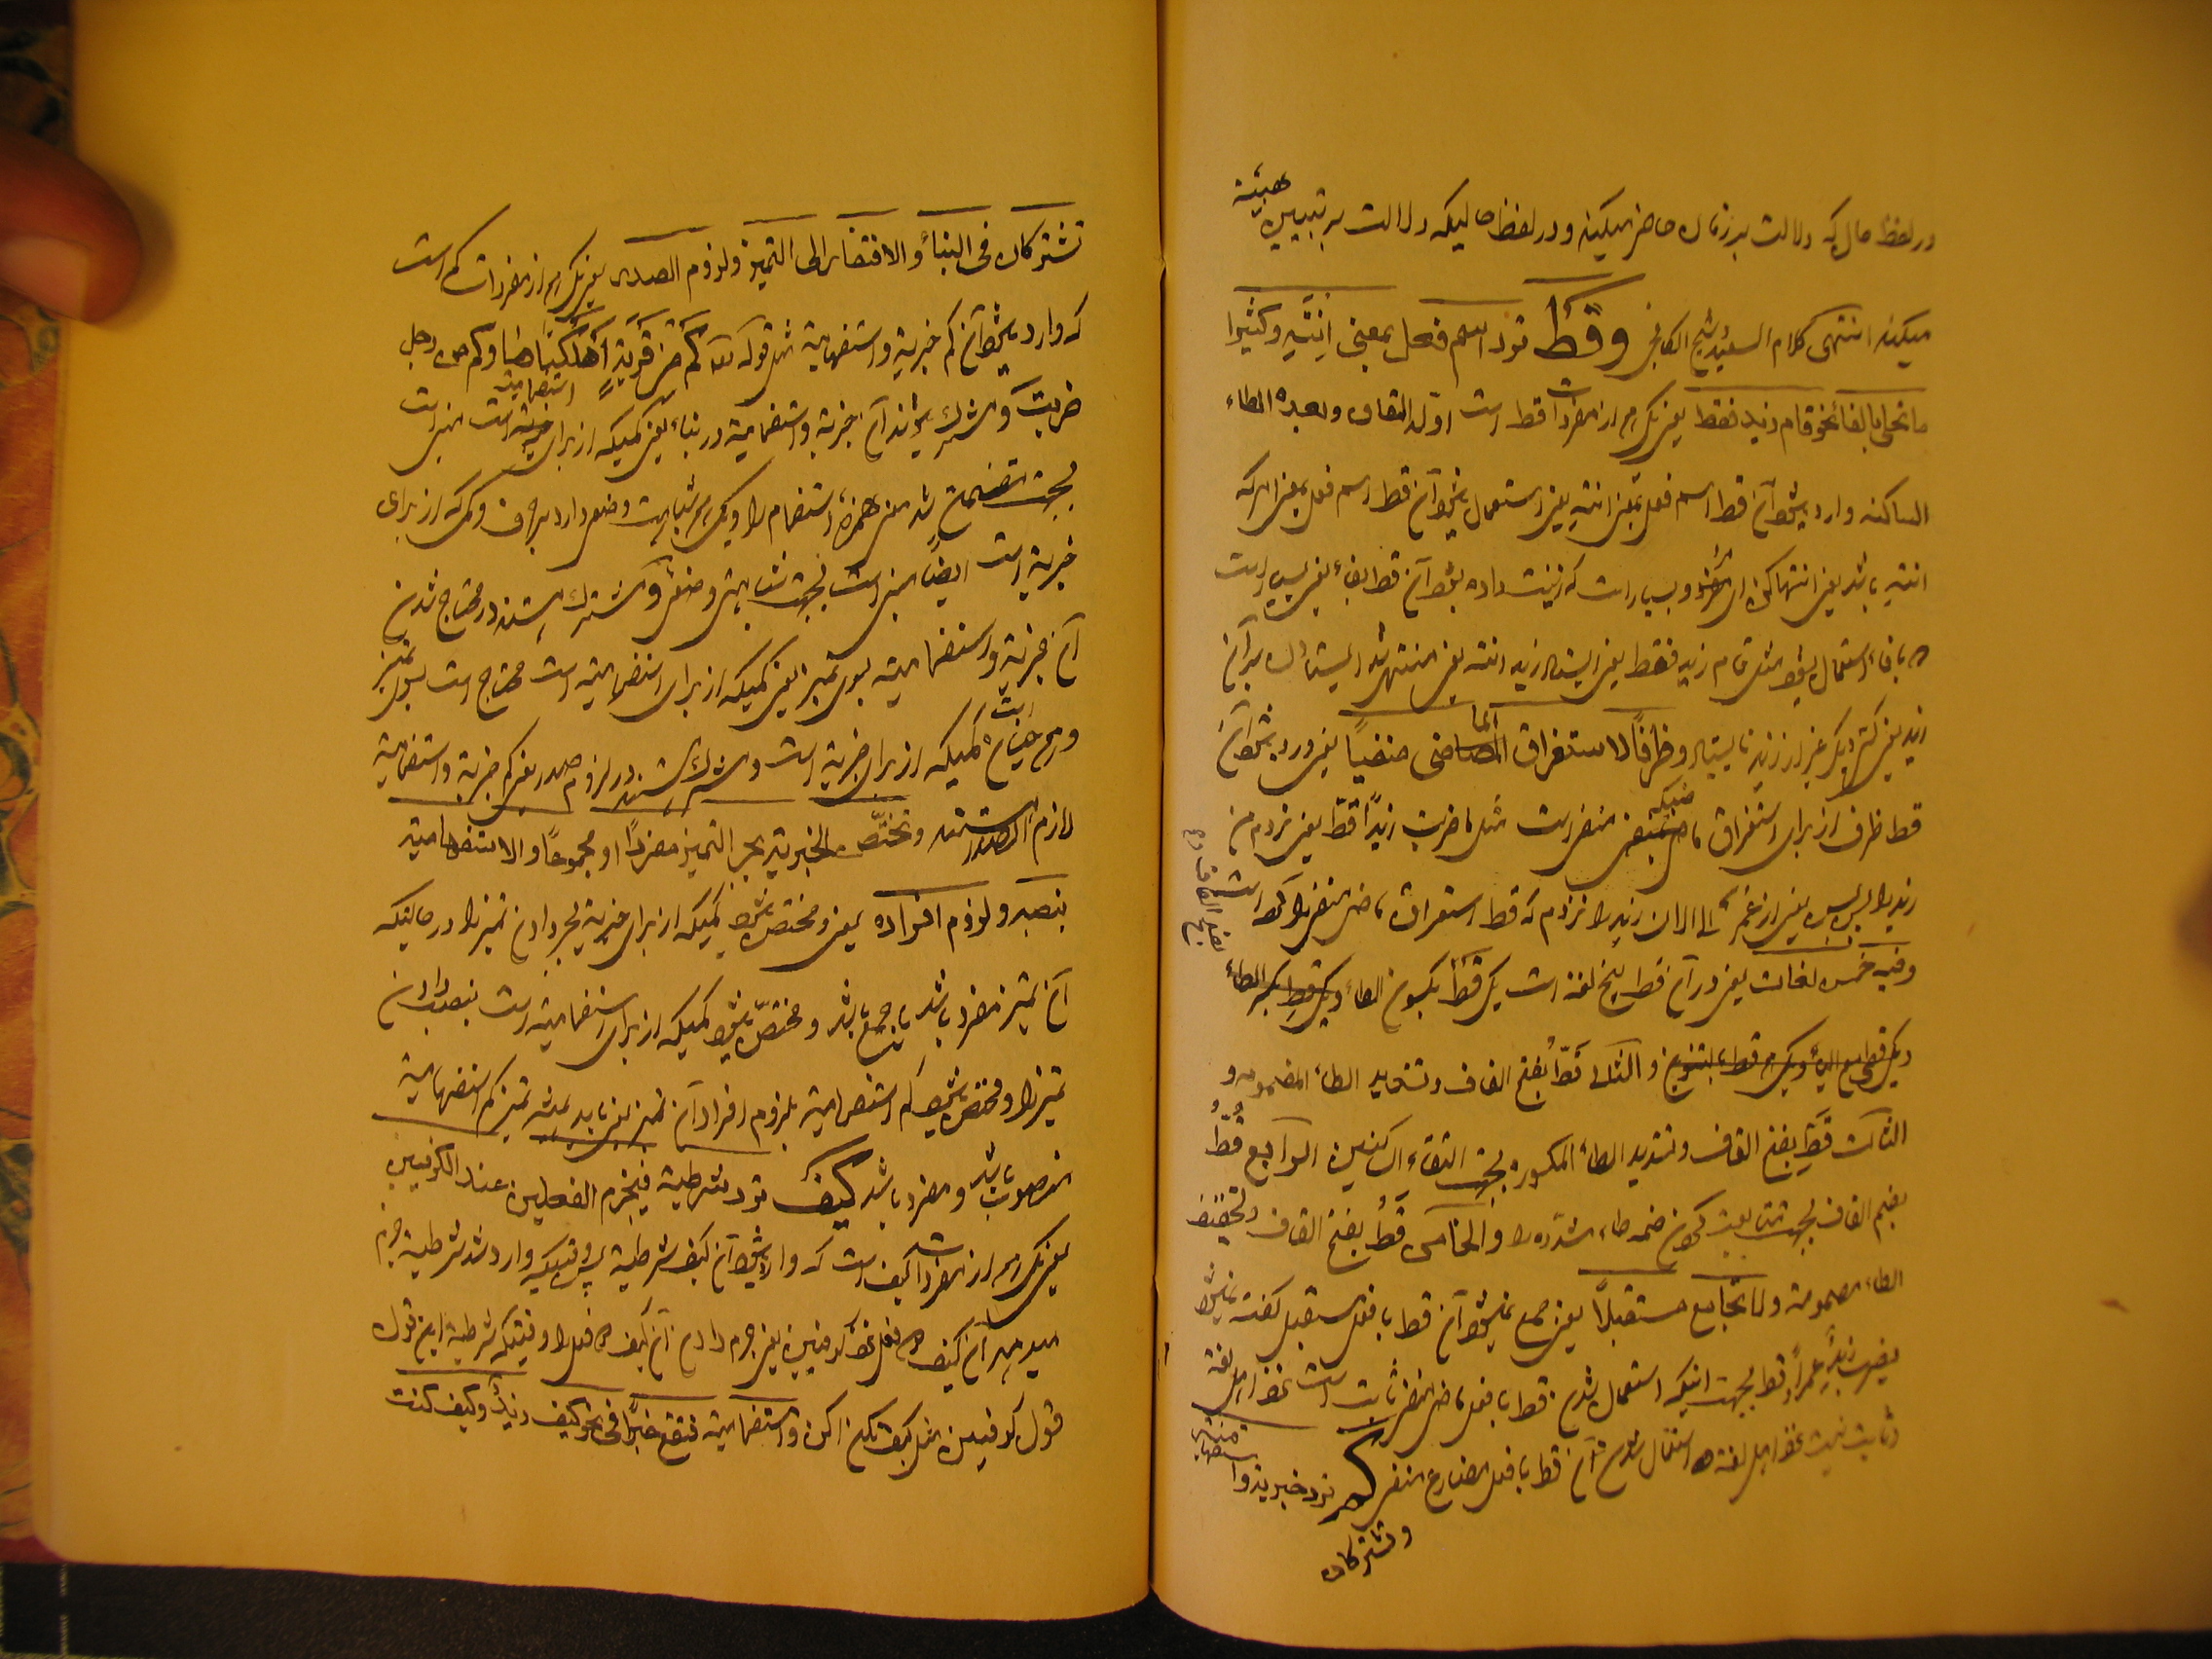 در لفظ حال که دلالت بر زمان حاضر میکند و در لفظ حالیکه دلالت بر تبیین هیئة
میکند انتهی کلام السعید شیخ وقط ترد اسم فعل بمعنی انته وکثیرا
ما تحلی بالفاء نحو قام زید فقط یعنی یکی از مفردات قط است اوله القاف وبعده الطاء
الساکنه وارد میشود آن قط اسم فعل بمعنی انته یعنی استعمال میشود آن قط اسم فعل بمعنی
انته باشد یعنی انتها کن وبسیار است که زینت داده میشود آن قط بفاء یعنی بسیار است
با فاء استعمال میشود مثل قام زید فقط یعنی ایستاد زید انته یعنی منتهی شد
زید یعنی دیگر غیر از زید نایستاد وظرفا لاستغراق الماضی منفیا یعنی وارد میشود آن
قط ظرف از برای استغراق ماضی منفی است مثل ما ضربت زیدا قط یعنی نزدم من
زید را الی الان زید را نزدم که قط استغراق ماضی منفی را کرده است
وفیه خمس لغات یعنی در آن قط پنج لغة است یکی قط بسکون الطاء ودیگر قط بکسر الطاء
بفتح القاف
والثانی قط بفتح القاف وتشدید الطاء المضمومه و
الثالث قط بفتح القاف وتشدید الطاء المکسوره بجهت التقاء الساکنین الرابع قط
بضم القاف بجهت متابعت کردن ضمه طاء مشدده را والخامس قط بفتح القاف وتخفیف
الطاء مضمومة ولا تجامع مستقبلا یعنی جمع نمیشود آن قط با فعل مستقبل گفته نمیشود
یضرب زید عمرا قط بجهت اینکه استعمال شدن قط با فعل ماضی منفی ثابت است نزد اهل لغة
وثابت نیست نزد اهل لغة استعمال شدن آن قط با فعل مضارع منفی کم ترد خبریة واستفهامیة
وتشترکان
تشترکان فی البناء والافتقار الی التمیز ولزوم الصدر یعنی یکی از مفردات کم است
که وارد میشود آن کم خبریة واستفهامیة مثل قوله تعالی کم من قریة اهلکناها وکم رجل
ضربت ومشترک میشوند آن خبریة واستفهامیة در بناء یعنی کمیکه از برای استفهامیة است مبنی است
بجهت متضمن شدن معنی همزه استفهام را ودیگر مشابهت وضعی دارد بحرف وکمی که از برای
خبریة است ایضا مبنی است بجهت مشابهت وضعی ومشترک هستند در محتاج شدن
آن خبریة واستفهامیة بسوی تمیز یعنی کمیکه از برای استفهامیة است محتاج است بسوی تمیز
وهمچنان است کمیکه از برای خبریة است ومشترک هستند در لزوم صدر یعنی کم خبریة واستفهامیة
لازم الصدر هستند وتختص الخبریة بجر التمیز مفردا او مجموعا والاستفهامیة
بنصبه ولزوم افراده یعنی ومختص میشود کمیکه از برای خبریة بجر دادن تمیز را در حالتیکه
آن تمیز مفرد باشد یا جمع باشد ومختص میشود کمیکه از برای استفهامیة است بنصب دادن
تمیز را ومختص میشود کم استفهامیة بلزوم افراد آن تمیز یعنی باید همیشه تمیز کم استفهامیة
منصوب باشد ومفرد باشد کیف ترد شرطیة فیجزم الفعلین عند الکوفیین
یعنی یکی از مفردات کیف است که وارد میشود آن کیف شرطیة پس وقتیکه وارد شد شرطیة جزم
میدهد آن کیف دو فعل نزد کوفیین یعنی جزم دادن آن کیف دو فعل را وقتیکه شرطیة این قول
قول کوفیین مثل کیف تکن اکن واستفهامیة فتقع خبرا فی نحو کیف زید وکیف کنت